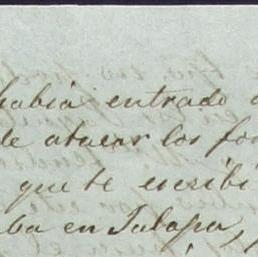 habia entrado
de atacar los
que te escribi
ba en Jalapa,